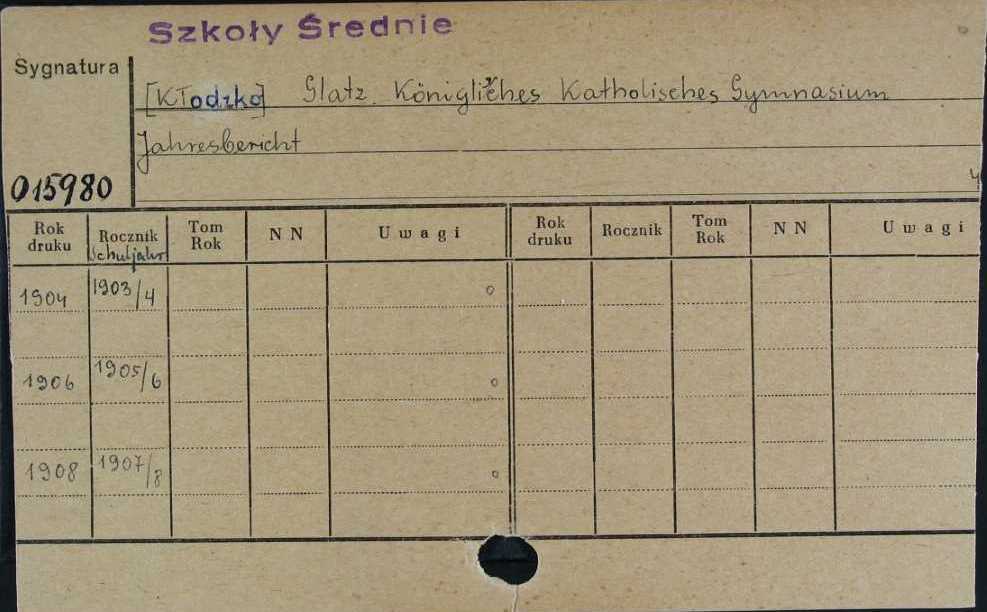 Szkoły Średnie
Sygnatura
[Kłodzko] Glatz. Königliches Katholisches Gymnasium
Jahresbericht
015980
4
Rok druku Rocznik Schuljahr Tom Rok NN Uwagi Rok druku Rocznik Tom Rok NN Uwagi
1904 1903/4
1906 1905/6
1908 1907/8